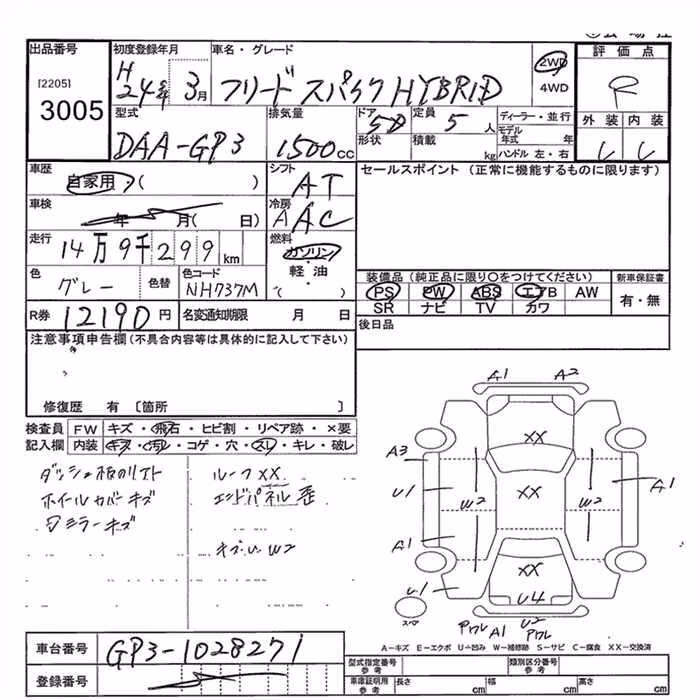 出品番号 初度登録年月 車名・グレード 2WD 4WD 評価点
[2205]
3005
H24年 3月 フリード スパイク HYBRID R
型式 排気量 ドア 定員 ディーラー・並行 外装 内装
DAA-GP3 1500cc 5D 5人 モデル年式 年
形状 積載 kg ハンドル 左・右
車歴 シフト セールスポイント (正常に機能するものに限ります)
自家用・( ) AT
車検 年 月( 日) 冷房 AAC
走行 燃料
14万9千299km ガソリン・軽油・( )
色 色替 色コード 装備品(純正品に限り〇をつけてください) 新車保証書
グレー NH737M PS PW ABS エアB AW 有・無
SR ナビ TV カワ
R券 12190円 名変通知期限 月 日 後日品
注意事項申告欄(不具合内容等は具体的に記入して下さい)
修復歴 有 〔箇所 〕
検査員 FW キズ・飛石・ヒビ割・リペア跡・×要
記入欄 内装 キズ・汚れ・コゲ・穴・スレ・キレ・破レ
ルーフ XX
ホイールカバーキズ エンドパネル歪
ミラーキズ
キズ・U W2
A1 A2
XX
A3
U1 W2 XX W2 A1
A1
U1 XX
U4
スペア
ワレ A1 U2 ワレ
A-キズ E-エクボ U-凹み W-補修跡 S-サビ C-腐食 XX-交換済
車台番号 GP3-1028271
登録番号
型式指定番号 参考 類別区分番号 参考
車庫証明用 参考 長さ cm 幅 cm 高さ cm